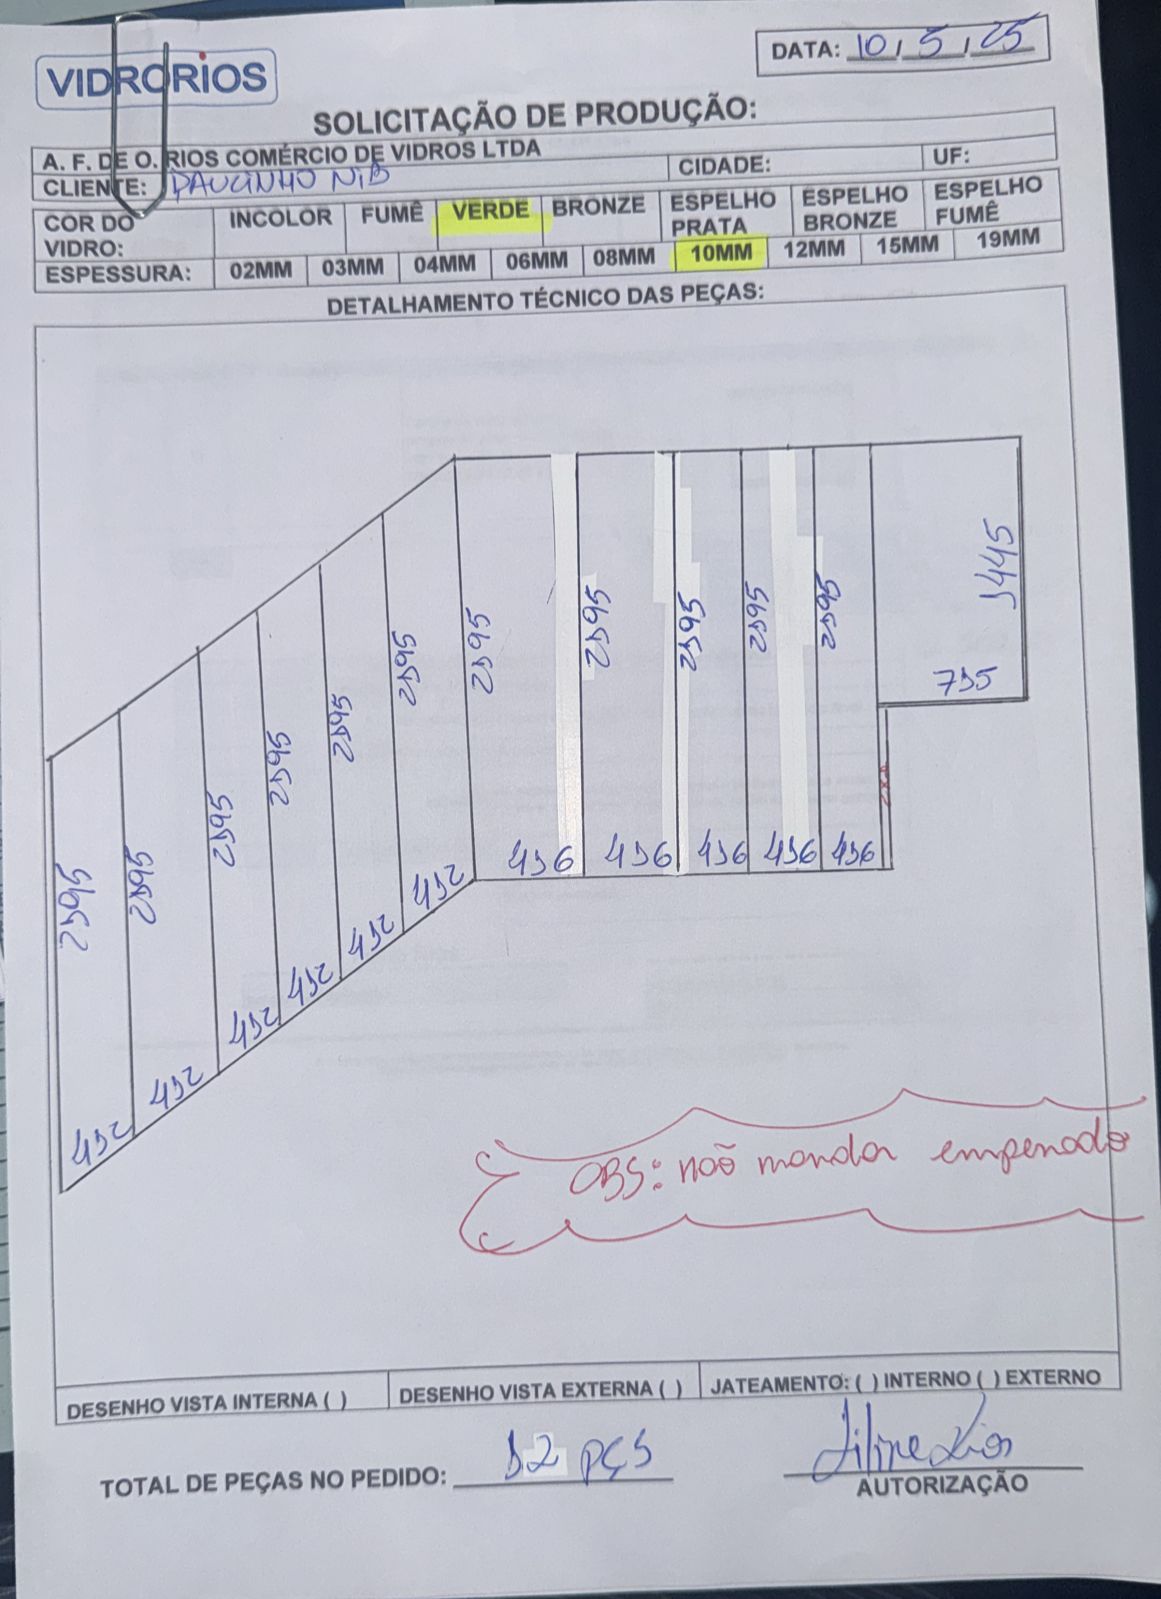 VIDRORIOS
DATA: 10, 5, 25
SOLICITAÇÃO DE PRODUÇÃO:
A. F. DE O. RIOS COMÉRCIO DE VIDROS LTDA
CLIENTE: PAULINHO NIB CIDADE: UF:
COR DO VIDRO: INCOLOR FUMÊ VERDE BRONZE ESPELHO PRATA ESPELHO BRONZE ESPELHO FUMÊ
ESPESSURA: 02MM 03MM 04MM 06MM 08MM 10MM 12MM 15MM 19MM
DETALHAMENTO TÉCNICO DAS PEÇAS:
2195 2195 2195 2195 2195 2195 2195 2195 2195 2195 2195 1445
715
416 416 416 416 416
412 412 412 412 412 412
OBS: não mandar empenado
DESENHO VISTA INTERNA ( ) DESENHO VISTA EXTERNA ( ) JATEAMENTO: ( ) INTERNO ( ) EXTERNO
TOTAL DE PEÇAS NO PEDIDO: 12 pçs
AUTORIZAÇÃO